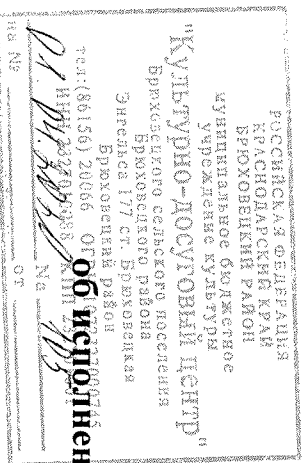 РОССИЙСКАЯ ФЕДЕРАЦИЯ
КРАСНОДАРСКИЙ КРАЙ
БРЮХОВЕЦКИЙ РАЙОН
муниципальное бюджетное
учреждение культуры
"Культурно-досуговый центр"
Брюховецкого сельского поселения
Брюховецкого района
Энгельса 177 ст. Брюховецкая
Брюховецкий район
тел:(86156) 20066
ИНН
№
на №
от
об исполнен